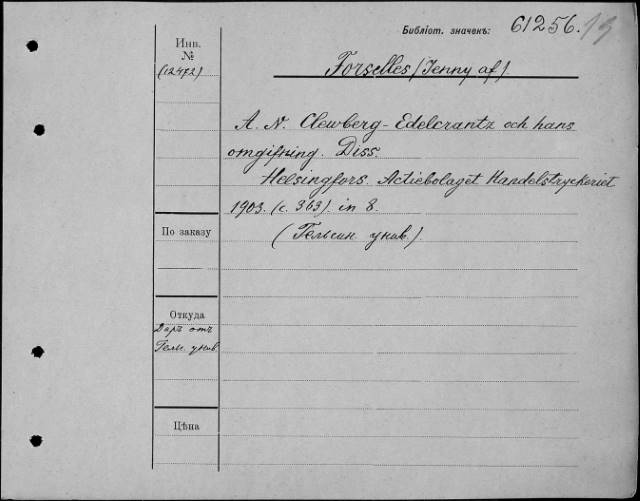 Библіот. значекъ: 61256. 15
Инв.
№
(12472)
Forselles (Jenny af).
A. N. Clewberg-Edelcrantz och hans
omgifning. Diss.
Helsingfors. Actiebolaget Handelstryckeriet
1903. (c. 363). in 8.
(Гельсин. унив.).
По заказу
Откуда
Даръ отъ
Гельс. унив.
Цѣна